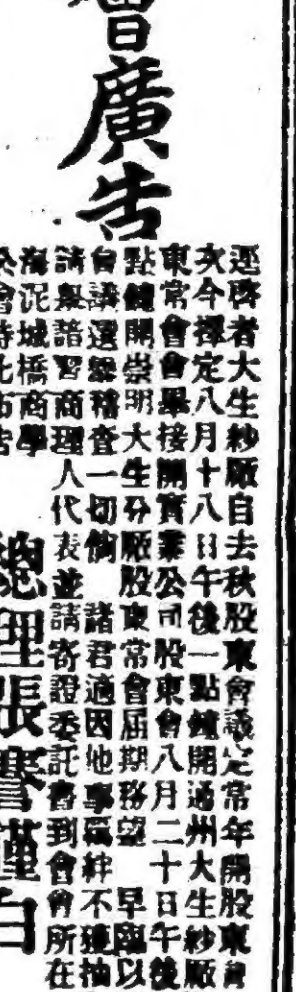 會廣告
逕啓者大生紗廠自去秋股東會議定常年開股東會
次今擇定八月十八日午後一點鐘開通州大生紗廠
東常會會畢接開實業公司股東會八月二十日午後
點鐘開崇明大生分廠股東常會屆期務望 早臨以
台議選舉稽查一切倘 諸君適因他事羈絆不獲抽
請舉諳習商理人代表並請寄證委託書到會會所在
海泥城橋商學
公會特此布告
總理張謇謹白